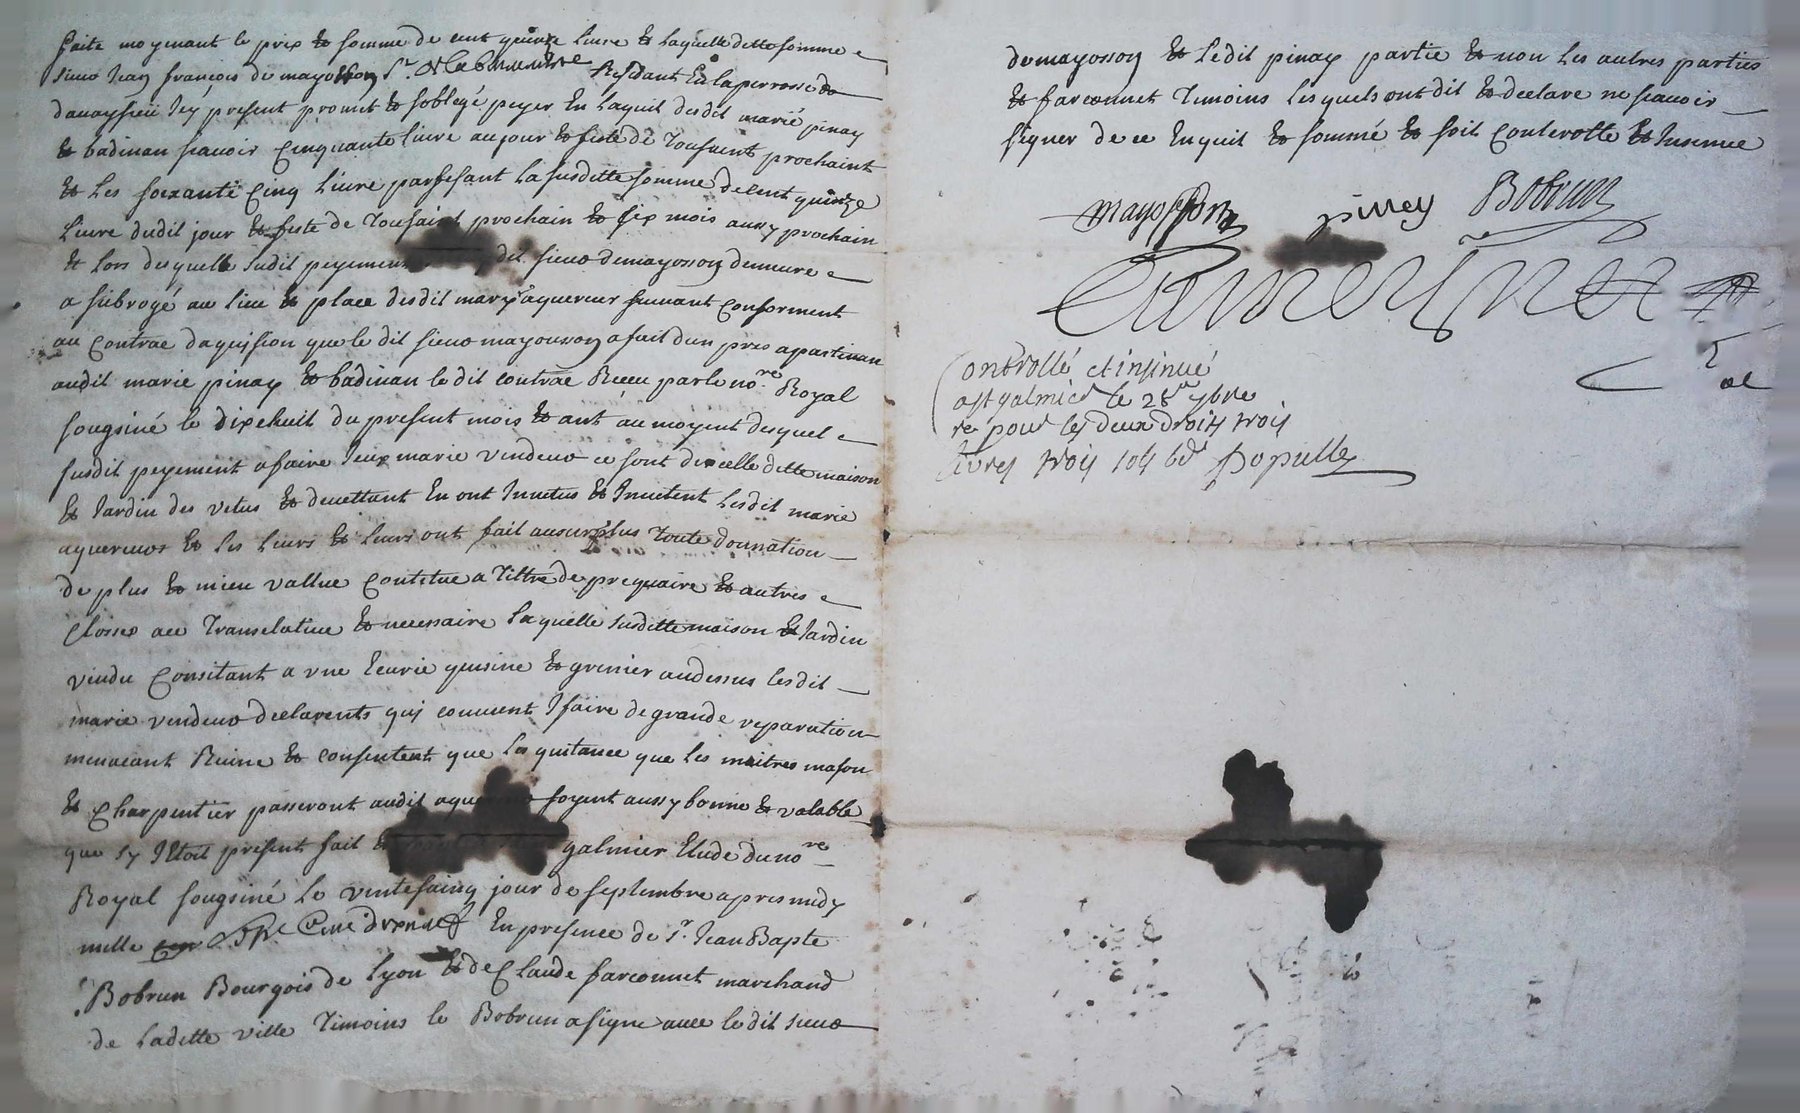 faite moyenant le prix & somme de cent quinze livre & laquelle ditte somme
sieur Jean françois de mayosson Sr. Residant En la perrosse de
davaysieu Jey present promit & soblegé peyer En laquit desdit marié pinay
& badinan scavoir Cinquante livre au jour & feste de Toussaint prochaint
& Les soixante Cinq Livre parfesant La susditte somme de cent quinze
Livre dudit jour & feste de Toussaint prochain & six mois aussy prochain
& Lors desquelle sudit peyement dit sieur demayosson demeure
a subrogé au lieu & place desdit mary aquereur suivant Conforment
au Contrac daquission que le dit sieur mayousson a fait dun prez apartinan
audit marie pinay & badinan le dit contrac Receu par le nore. Royal
sousiné le dixehuit du present mois & ant au moyent desquel
susdit peyement a faire Jeux marie vendeur ce sont dixcelle ditte maison
& Jardin des vetus & devettant En ont Invetus & Invetent Lesdit marie
aquereurs & les Leurs & Leurs ont fait au surplus Toute donnation
de plus & mieu vallue Contitue a Tiltre de prequaire & autres
Closses ace Translative & necessaire Laquelle susditte maison & Jardin
vendu Consitant a vne Ecurie quisine & grenier audessus lesdit
marie vendeur declarents quj convient Jfaire de grande reparation
menacant Ruine & consentent que les quitance que les maitres mason
& Charpentier passeront audit soyent aussy bonne & valable
que sy Jltoit present fait galmier Etude du nore
Royal sousiné Le vintesainq jour de septembre apres midy
mille En presence de Sr. Jean Bapte
Bobrun Bourgois de Lyon & de Claude farconnet marchand
de Laditte ville Timoins le Bobrun a signe avec le dit sieur
demayosson & Ledit pinay partie & non Les autres parties
& farconnet Timoins Lesquels ont dit & declare ne scavoir
signer de ce Enquit & sommé & soit Conterolle & Insinue
mayosson piney Bobrun
Controllé et insinué
a st galmier le 28e 7bre
re pour les deux droits trois
livres trois sols 6d Populle